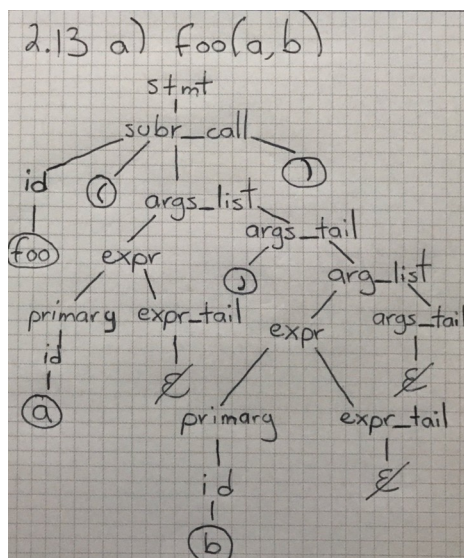 2.13 a) foo(a,b)
stmt
subr_call
id ( args_list )
foo expr args_tail
, arg_list
primary expr_tail expr args_tail
id ε ε
a primary expr_tail
id ε
b